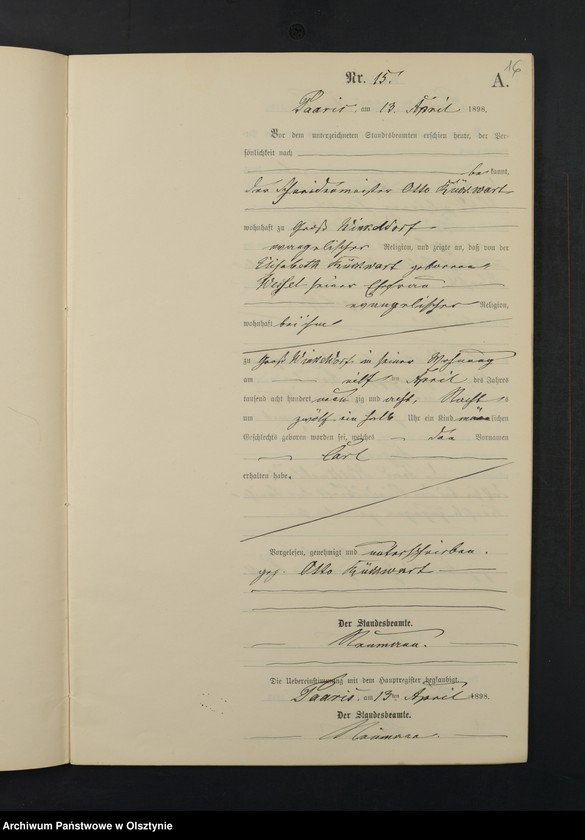 16
Nr. 15. A.
Paaris am 13. April 1898.
Vor dem unterzeichneten Standesbeamten erschien heute, der Per-
sönlichkeit nach
be kannt,
der Schneidermeister Otto
wohnhaft zu Groß Winkeldorf
evangelischer Religion, und zeigte an, daß von der
Elisabeth geborenen
seiner Ehefrau
evangelischer Religion,
wohnhaft bei ihm
zu Groß Winkeldorf in seiner Wohnung
am elf ten April des Jahres
tausend acht hundert neun zig und acht, Nachts
um zwölf ein halb Uhr ein Kind männlichen
Geschlechts geboren worden sei, welches den Vornamen
Carl
erhalten habe.
Vorgelesen, genehmigt und unterschrieben.
gez. Otto
Der Standesbeamte.
Naumann.
Die Uebereinstimmung mit dem Hauptregister beglaubigt.
Paaris am 13ten April 1898.
Der Standesbeamte.
Naumann.
Archiwum Państwowe w Olsztynie